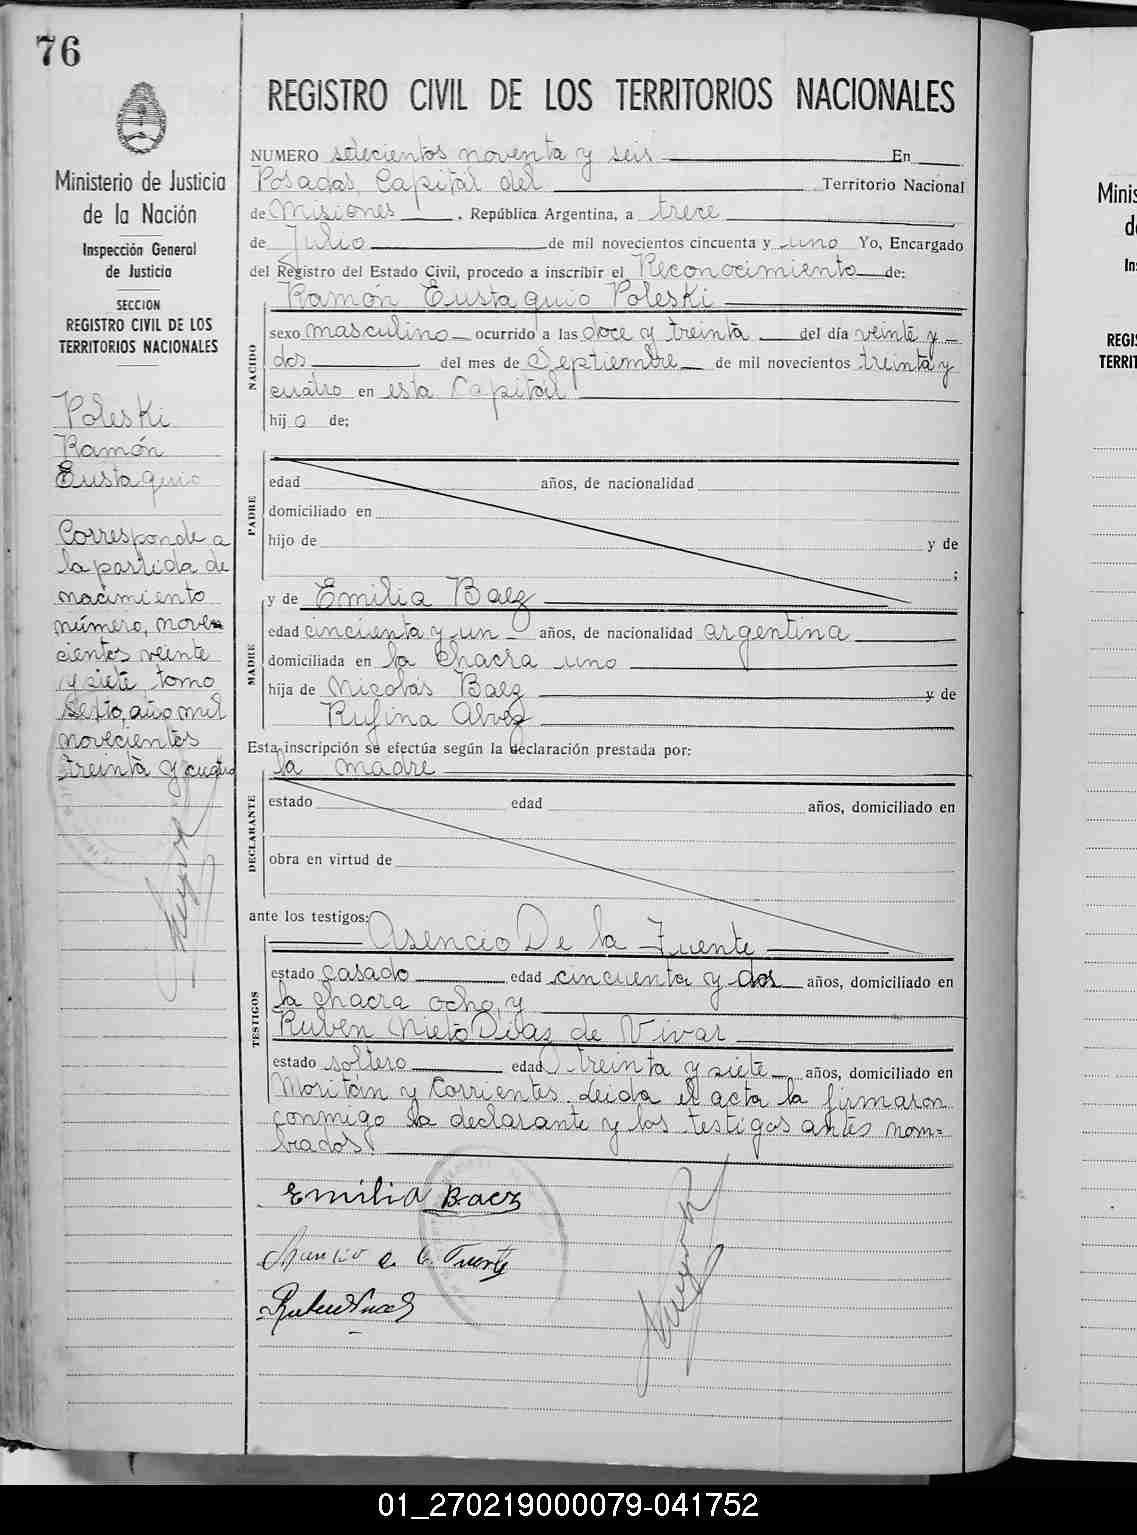 76
REGISTRO CIVIL DE LOS TERRITORIOS NACIONALES
Ministerio de Justicia
de la Nación
Inspección General
de Justicia
SECCION
REGISTRO CIVIL DE LOS
TERRITORIOS NACIONALES
Poleski
Ramón
Eustaquio
Corresponde a
la partida de
nacimiento
número, nove-
cientos veinte
y siete, tomo
sexto, año mil
novecientos
treinta y cuatro
NUMERO setecientos noventa y seis En
Posadas, Capital del Territorio Nacional
de Misiones, República Argentina, a trece
de Julio de mil novecientos cincuenta y uno Yo, Encargado
del Registro del Estado Civil, procedo a inscribir el Reconocimiento de:
Ramón Eustaquio Poleski
NACIDO
sexo masculino ocurrido a las doce y treinta del día veinte y
dos del mes de Septiembre de mil novecientos treinta y
cuatro en esta Capital
hij o de;
PADRE
edad años, de nacionalidad
domiciliado en
hijo de y de
;
y de Emilia Baez
MADRE
edad cincuenta y un años, de nacionalidad argentina
domiciliada en la chacra uno
hija de Nicolás Baez y de
Rufina Alvez
Esta inscripción se efectúa según la declaración prestada por:
la madre
DECLARANTE
estado edad años, domiciliado en
obra en virtud de
ante los testigos:
Asencio De la Fuente
TESTIGOS
estado casado edad cincuenta y dos años, domiciliado en
la chacra ocho, y
Ruben Nieto Diaz de Vivar
estado soltero edad treinta y siete años, domiciliado en
Moritán y Corrientes. Leida el acta la firmaron
conmigo la declarante y los testigos antes nom=
brados
Emilia Baez
Minis
d
In
REGIS
TERRIT
01_270219000079-041752